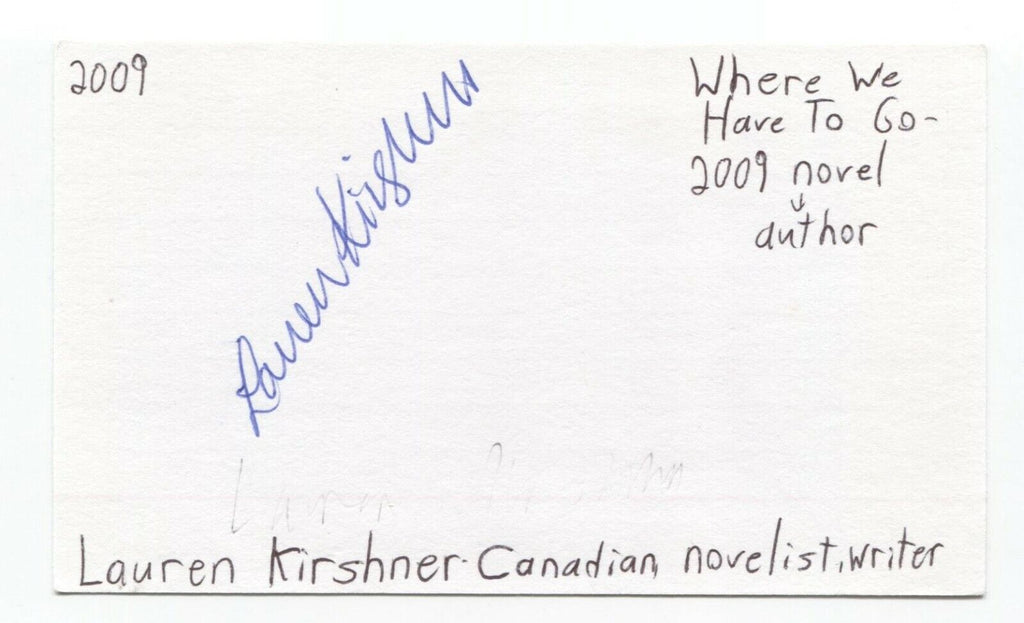 2009
Where We
Have To Go-
2009 novel
author
Lauren Kirshner
Lauren Kirshner-Canadian, novelist, writer